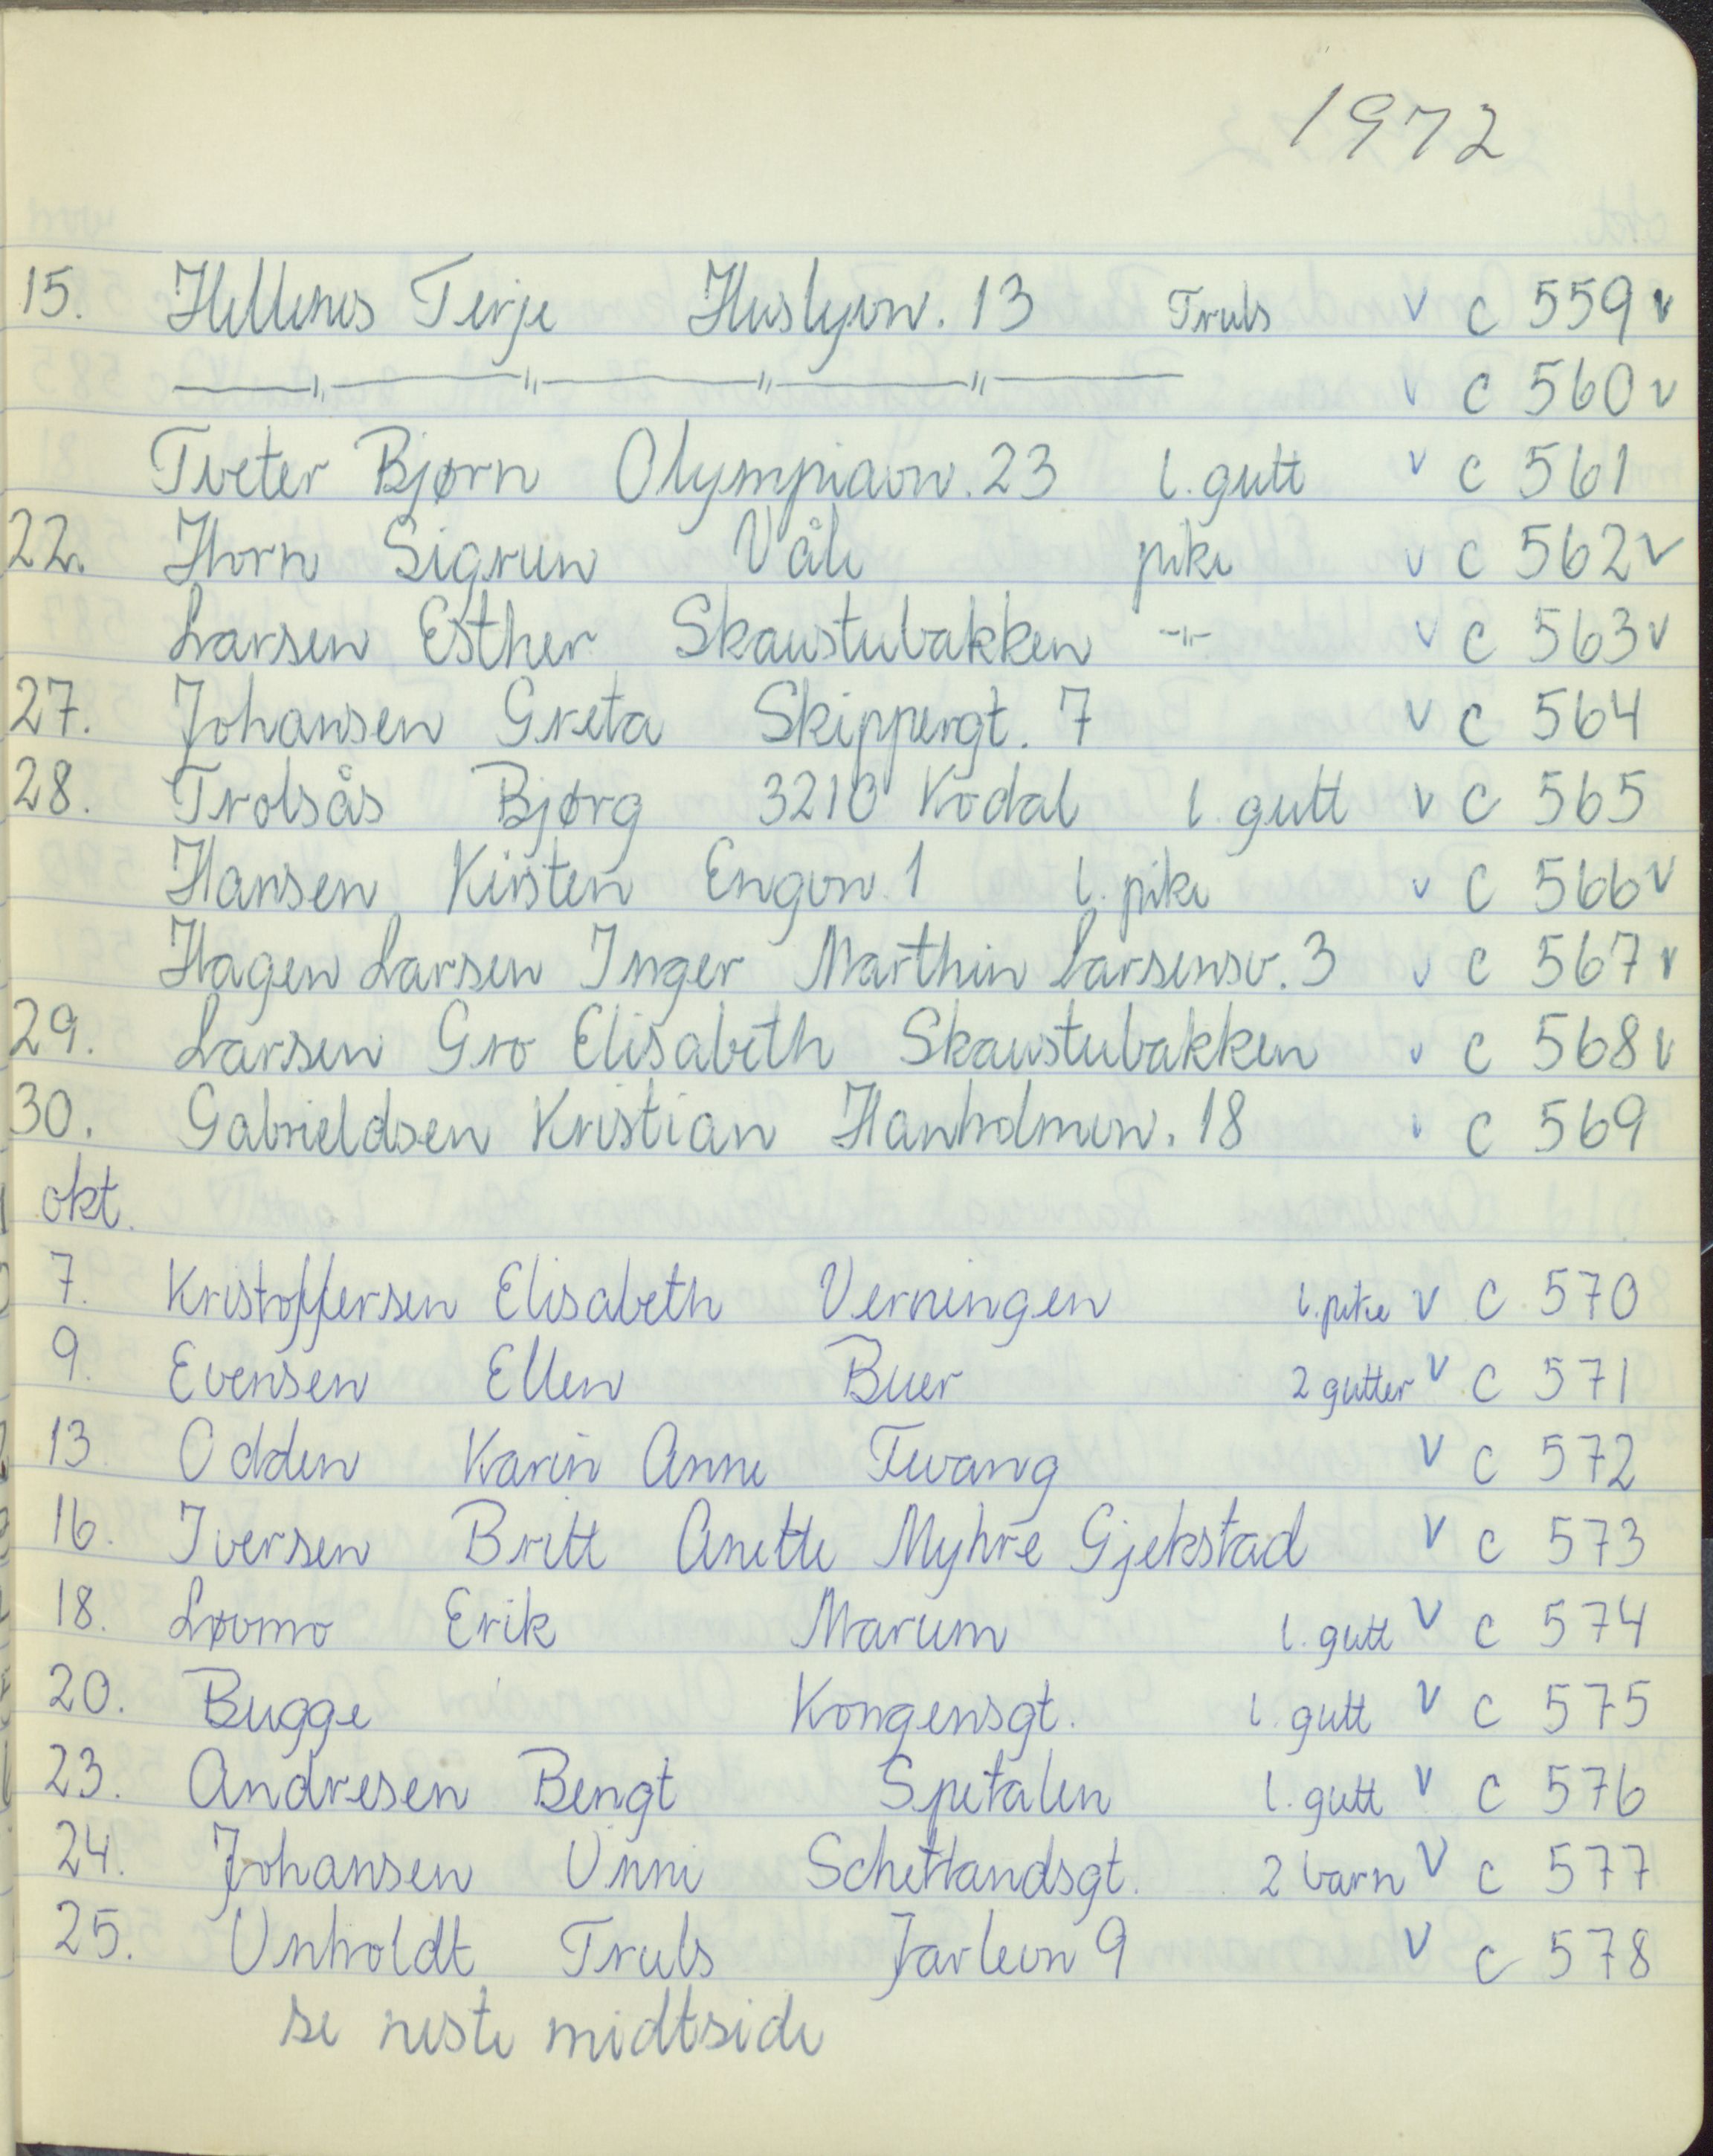 1972
15. Hellenes Terje Huslyvn. 13 Truls v c 559 v
—〃—〃—〃—〃— v c 560 v
Tveter Bjørn Olympiavn. 23 1. gutt v c 561
22. Horn Sigrun Våle pike v c 562 v
Larsen Esther Skaustubakken -〃- v c 563 v
27. Johansen Greta Skippergt. 7 v c 564
28. Trolsås Bjørg 3210 Kodal 1 gutt v c 565
Hansen Kirsten Engvn. 1 1. pike v c 566 v
Hagen Larsen Inger Marthin Larsensv. 3 v c 567 v
29. Larsen Gro Elisabeth Skaustubakken v c 568 v
30. Gabrieldsen Kristian Hanholmvn. 18 v c 569
okt.
7. Kristoffersen Elisabeth Verningen 1. pike v c 570
9. Evensen Ellen Buer 2 gutter v c 571
13 Odden Karin Anne Furang v c 572
16. Iversen Britt Anette Myhre Gjekstad v c 573
18. Løvmo Erik Marum 1. gutt v c 574
20. Bugge Kongensgt. 1. gutt v c 575
23. Andresen Bengt Spetalen 1. gutt v c 576
24. Johansen Unni Schetlandsgt. 2 barn v c 577
25. Unholdt Truls Jarlevn 9 v c 578
se neste midtside